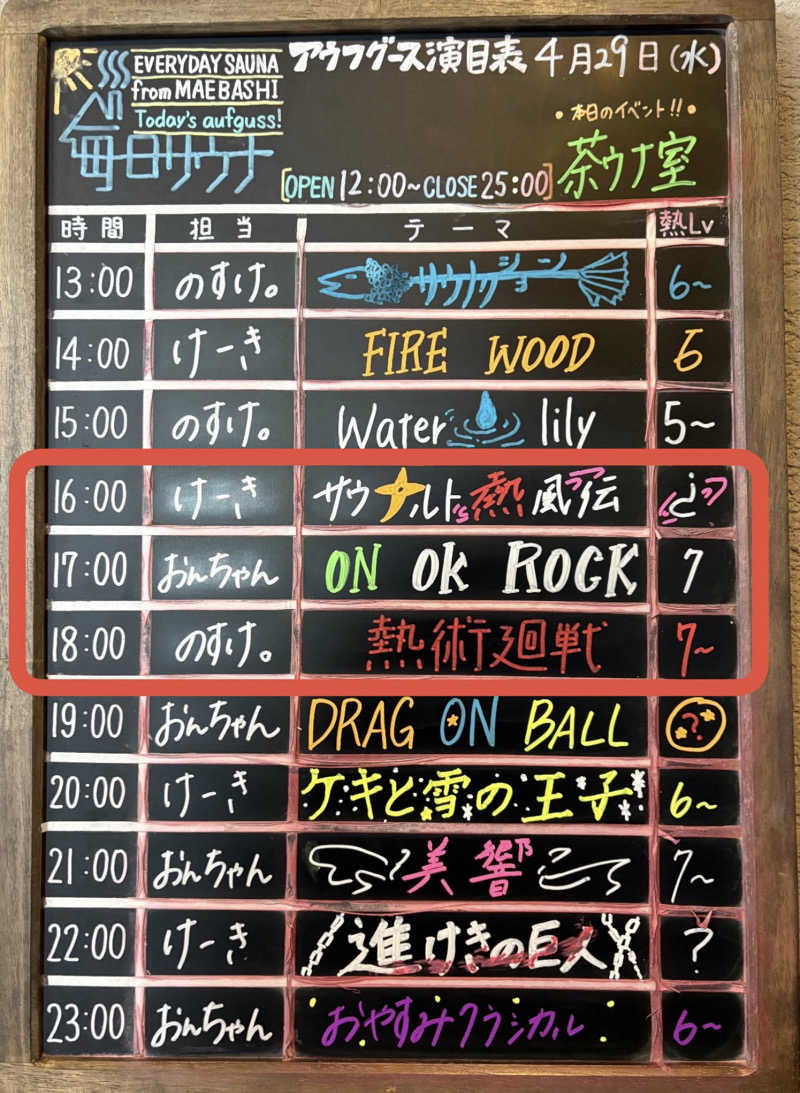 EVERYDAY SAUNA
from MAEBASHI
Today's aufguss!
毎日サウナ
アウフグース演目表 4月29日(水)
・本日のイベント!!・
茶ウナ室
[OPEN 12:00~CLOSE 25:00]
時間 担当 テーマ 熱Lv
13:00 のすけ。 サウナクション 6~
14:00 けーき FIRE WOOD 6
15:00 のすけ。 Water lily 5~
16:00 けーき サウナルト熱風伝 ¿
17:00 おんちゃん ON Ok ROCK 7
18:00 のすけ。 熱術廻戦 7~
19:00 おんちゃん DRAG ON BALL ?
20:00 けーき ケキと雪の王子 6~
21:00 おんちゃん 美響 7~
22:00 けーき 進けきの巨人 ?
23:00 おんちゃん おやすみクラシカル 6~